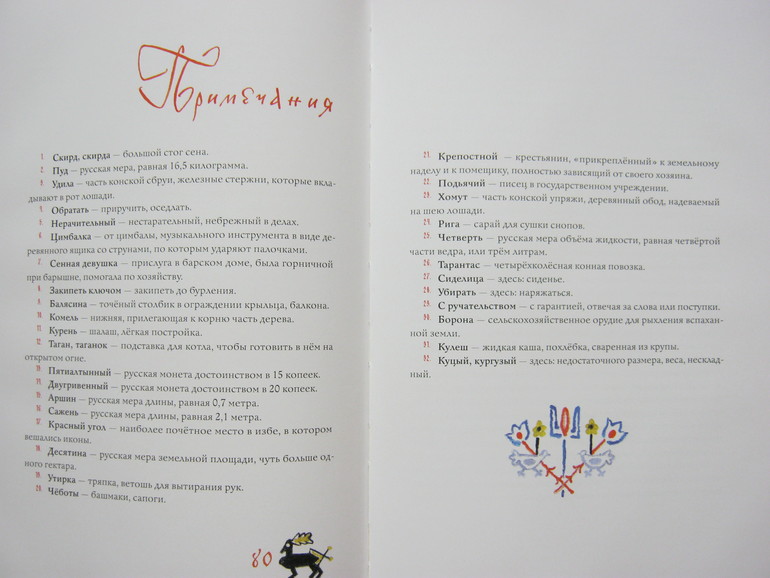 Примечания
1. Скирд, скирда — большой стог сена.
2. Пуд — русская мера, равная 16,5 килограмма.
3. Удила — часть конской сбруи, железные стержни, которые вкла-
дывают в рот лошади.
4. Обратать — приручить, оседлать.
5. Нерачительный — нестарательный, небрежный в делах.
6. Цимбалка — от цимбалы, музыкального инструмента в виде де-
ревянного ящика со струнами, по которым ударяют палочками.
7. Сенная девушка — прислуга в барском доме, была горничной
при барышне, помогала по хозяйству.
8. Закипеть ключом — закипеть до бурления.
9. Балясина — точёный столбик в ограждении крыльца, балкона.
10. Комель — нижняя, прилегающая к корню часть дерева.
11. Курень — шалаш, лёгкая постройка.
12. Таган, таганок — подставка для котла, чтобы готовить в нём на
открытом огне.
13. Пятиалтынный — русская монета достоинством в 15 копеек.
14. Двугривенный — русская монета достоинством в 20 копеек.
15. Аршин — русская мера длины, равная 0,7 метра.
16. Сажень — русская мера длины, равная 2,1 метра.
17. Красный угол — наиболее почётное место в избе, в котором
вешались иконы.
18. Десятина — русская мера земельной площади, чуть больше од-
ного гектара.
19. Утирка — тряпка, ветошь для вытирания рук.
20. Чёботы — башмаки, сапоги.
80
21. Крепостной — крестьянин, «прикреплённый» к земельному
наделу и к помещику, полностью зависящий от своего хозяина.
22. Подьячий — писец в государственном учреждении.
23. Хомут — часть конской упряжи, деревянный обод, надеваемый
на шею лошади.
24. Рига — сарай для сушки снопов.
25. Четверть — русская мера объёма жидкости, равная четвёртой
части ведра, или трём литрам.
26. Тарантас — четырёхколёсная конная повозка.
27. Сиделица — здесь: сиденье.
28. Убирать — здесь: наряжаться.
29. С ручательством — с гарантией, отвечая за слова или поступки.
30. Борона — сельскохозяйственное орудие для рыхления вспахан-
ной земли.
31. Кулеш — жидкая каша, похлёбка, сваренная из крупы.
32. Куцый, кургузый — здесь: недостаточного размера, веса, несклад-
ный.